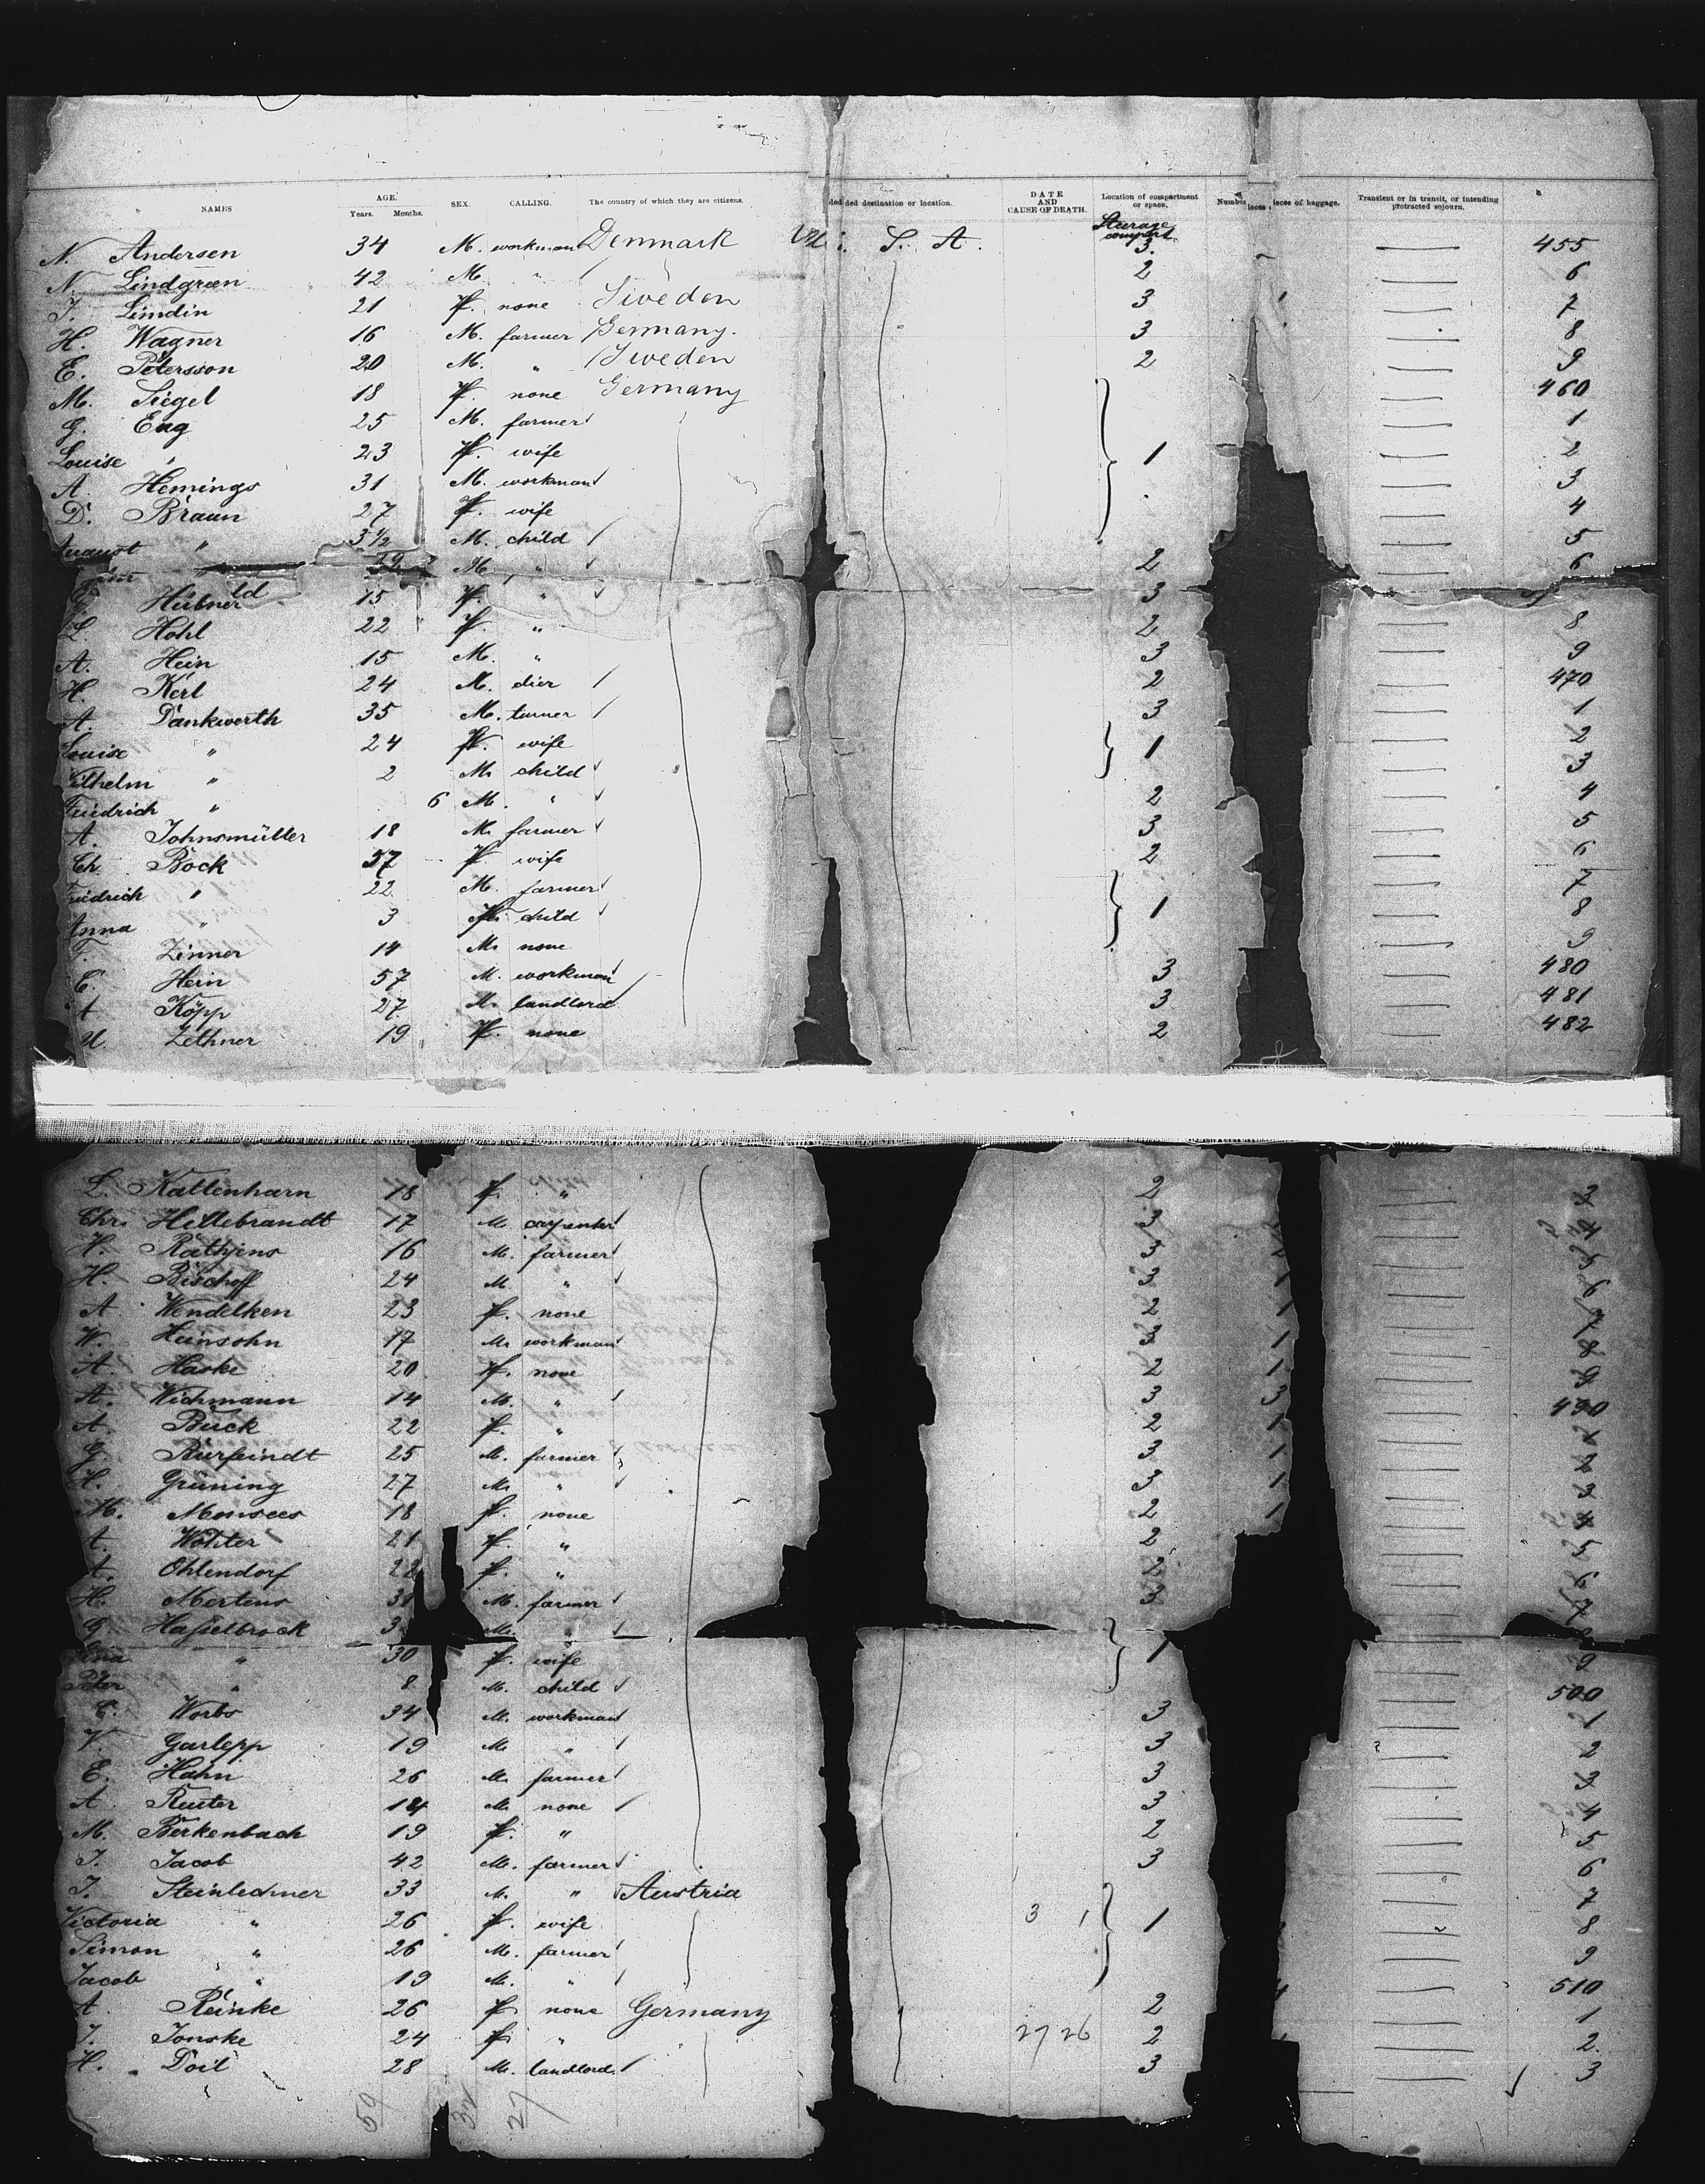 NAMES AGE. Years. Months. SEX. CALLING. The country of which they are citizens. ded destination or location. DATE AND CAUSE OF DEATH. Location of compartment or space. Number pieces of baggage. Transient or in transit, or intending protracted sojourn.
Steerage compart.
N. Andersen 34 M. workman Denmark U. S. A. 3. 455
N. Lindgreen 42 M. " 2 6
J. Limdin 21 F. none Sweden 3 7
H. Wagner 16 M. farmer Germany. 3 8
E. Petersson 20 M. " Sweden 2 9
M. Siegel 18 F. none Germany 460
G. Eng 25 M. farmer 1
Louise " 23 F. wife 1 2
A. Hemings 31 M. workman 3
D. Braun 27 F. wife 4
August " 3 1/2 M. child 5
M. " 2 6
Hübner 15 F. " 3
L. Hohl 22 F. " 2 8
A. Hein 15 M. " 3 9
H. Kerl 24 M. dier 2 470
A. Dankwerth 35 M. turner 3 1
Louise " 24 F. wife 1 2
Wilhelm " 2 M. child 3
Friedrich " 6 M. " 2 4
A. Johnsmüller 18 M. farmer 3 5
Ch. Bock 57 F. wife 2 6
Friedrich " 22 M. farmer 7
Anna " 3 F. child 1 8
F. Zinner 14 M. none 9
C. Hein 57 M. workman 3 480
A. Köpp 27 M. landlord 3 481
U. Zethner 19 F. none 2 482
L. Kattenharn 18 F. " 2 3
Chr. Hillebrandt 17 M. carpenter 3 4
H. Rathjens 16 M. farmer 3 2 5
H. Bischoff 24 M. " 3 1 6
A. Wendelken 23 F. none 2 1 7
W. Heinsohn 17 M. workman 3 1 8
A. Haske 20 F. none 2 1 9
A. Wichmann 14 M. " 3 3 490
A. Buck 22 F. " 2 1 1
G. Burfeindt 25 M. farmer 3 1 2
H. Grüning 27 M. " 3 1 3
M. Monsees 18 F. none 2 1 4
A. Wohter 21 F. " 2 5
A. Ohlendorf 22 F. " 2 6
H. Mertens 31 M. farmer 3 7
G. Haßelbrock 3 M. "
" 30 F. wife 1 9
Peter " 8 M. child 500
C. Worbs 34 M. workman 3 1
V. Garlepp 19 M. " 3 2
E. Hahn 26 M. farmer 3 3
A. Reuter 14 M. none 3 4
M. Berkenbach 19 F. " 2 5
J. Jacob 42 M. farmer 3 6
J. Steinlechner 33 M. " Austria 7
Victoria " 26 F. wife 3 1 1 8
Simon " 26 M. farmer 9
Jacob " 19 M. " 510
A. Reinke 26 F. none Germany 2 1
J. Jonske 24 F. " 27 26 2 2.
H. Doil 28 M. landlord 3 3
59 32 27